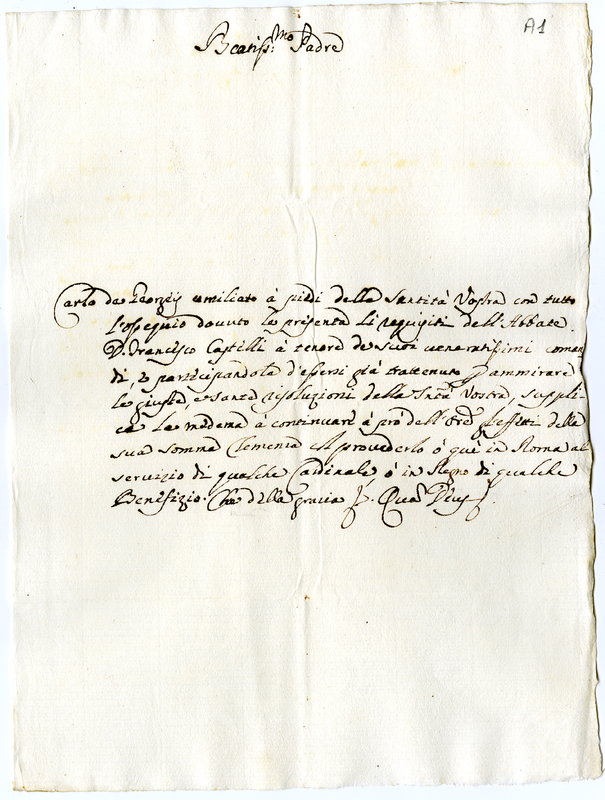 A1
Beatiss:mo Padre
Carlo de Georgij umiliato à piedi della Santità Vostra con tutto
l'ossequio dovuto le presenta li requisiti dell'Abbate
D. Francesco Castelli à tenore de suoi veneratissimi coman
di, e participandola d'essersi già trattenuto ad ammirare
le giuste, e sante risoluzioni della Sntà Vostra, suppli-
ca la medema à continuare à prò dell' Ore gl'effetti della
sua somma Clemenza col provederlo ò quì in Roma al
servizio di qualche Cardinale, ò in Regno di qualche
Benefizio. Che della grazia &. Quam Deus &.